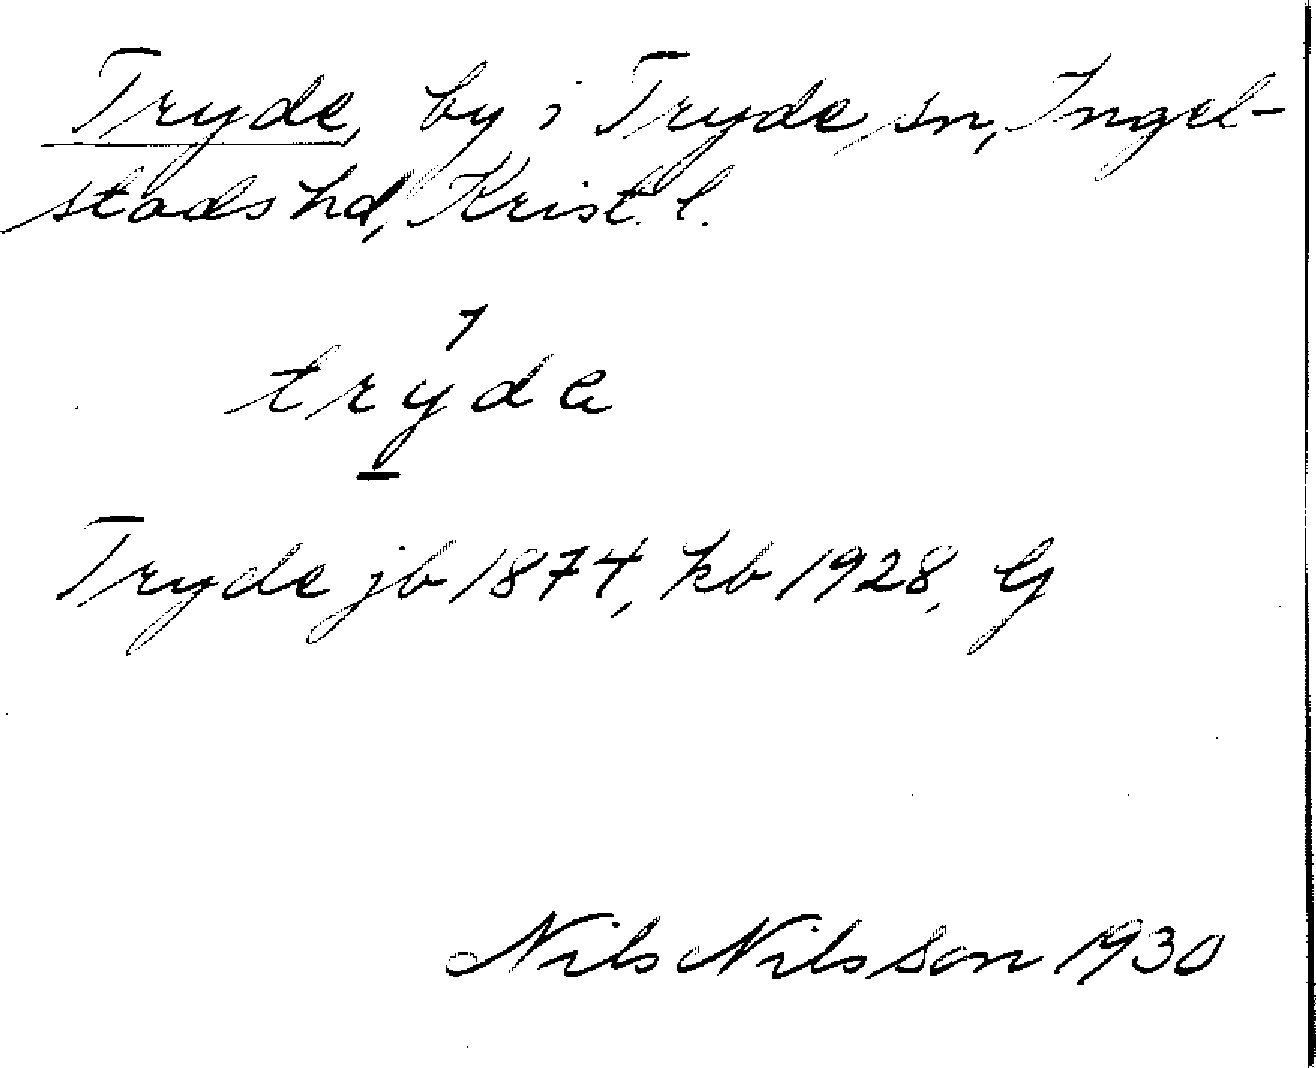 Tryde, by i Tryde sn, Ingel-
stads hd, Krist. l.
trydɑ
Tryde jb 1874, kb 1928, G
Nils Nilsson 1930